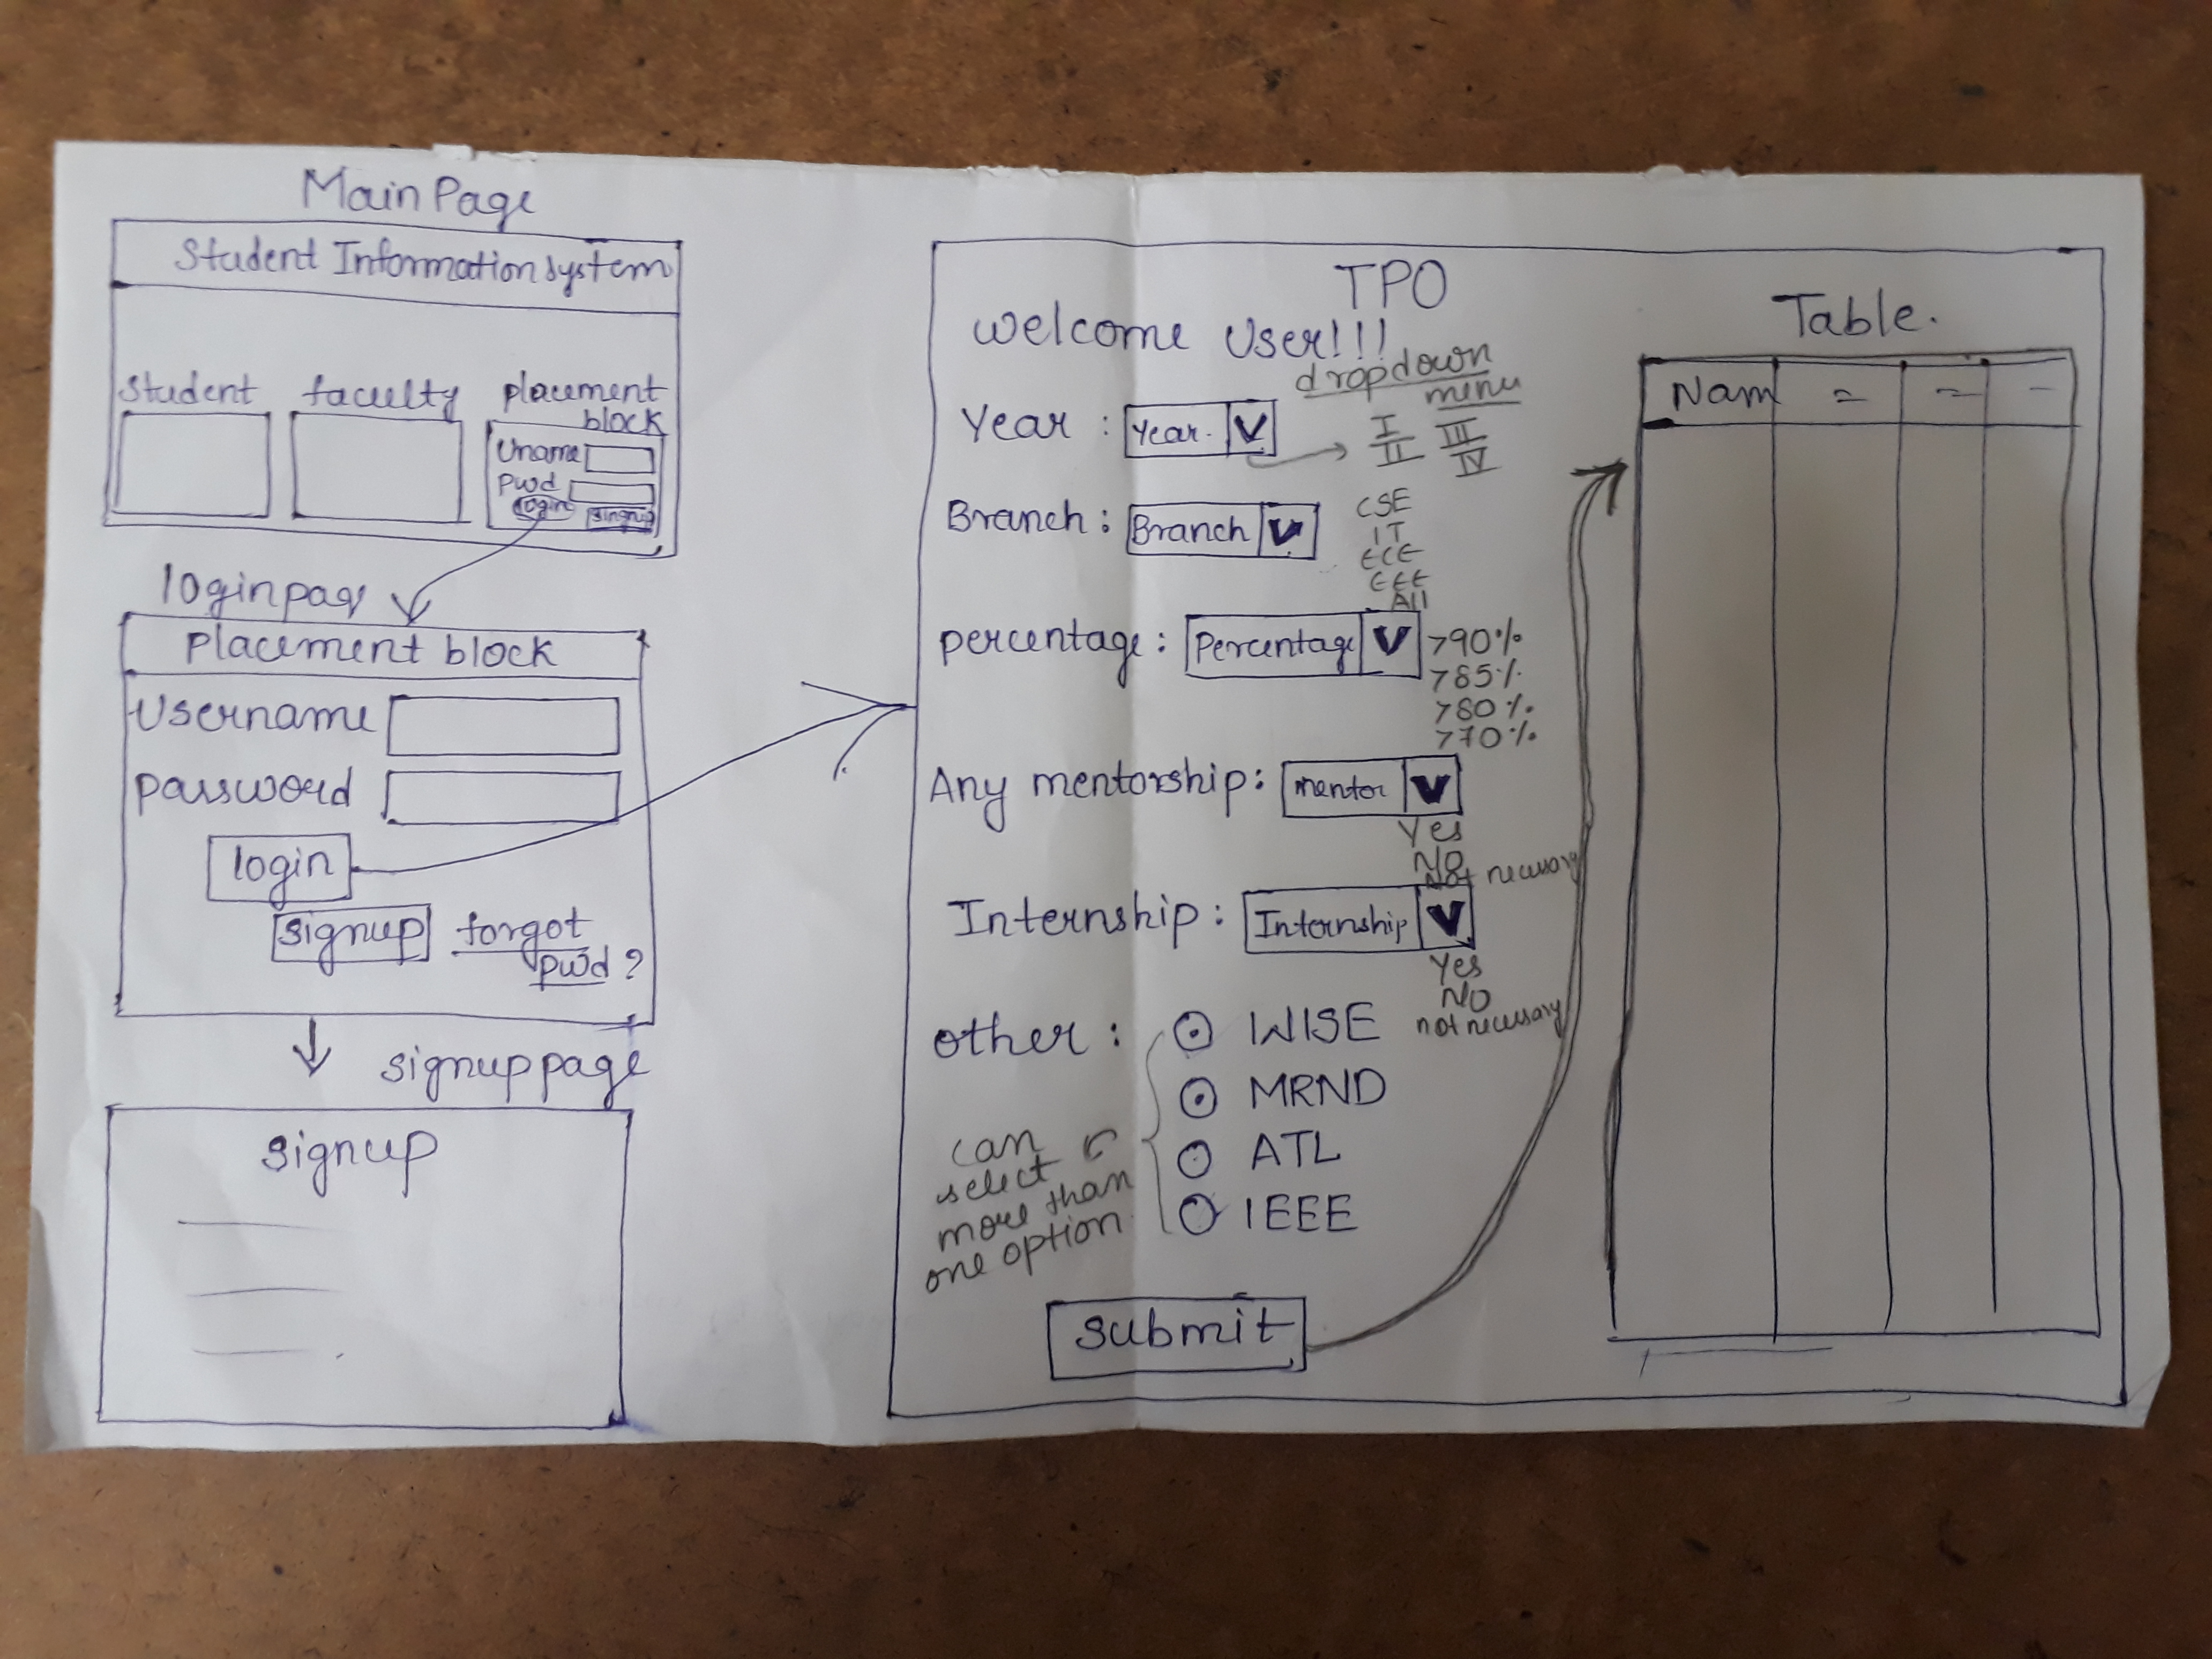 Main Page
Student Information System
Student
faculty
placement
block
Uname
Pwd
login
singnup
loginpag
Placement block
Username
password
login
signup
forgot
pwd ?
signup page
signup
TPO
Welcome User!!!
dropdown
menu
Year : Year. V
I III
II IV
Branch : Branch V
CSE
IT
ECE
EEE
All
percentage : Percentage V
>90%
>85%
>80%
>70%
Any mentorship : mentor V
Yes
NO
Not necessary
Internship : Internship V
Yes
NO
not necessary
other : WISE
MRND
ATL
IEEE
can
select
more than
one option
submit
Table.
Nam